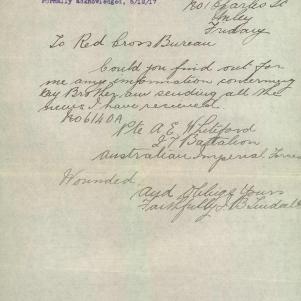 Formally acknowledged, 5/12/17
801 Charles St
Unley
Friday
To Red Cross Bureau
Could you find out for
me any information concerning
my Brother am sending all the
news I have recieved
No 6140A
Pte A E Whiteford
27 Battalion
Australian Imperial Forces
Wounded
And Oblige Yours
Faithfully J B Tindall